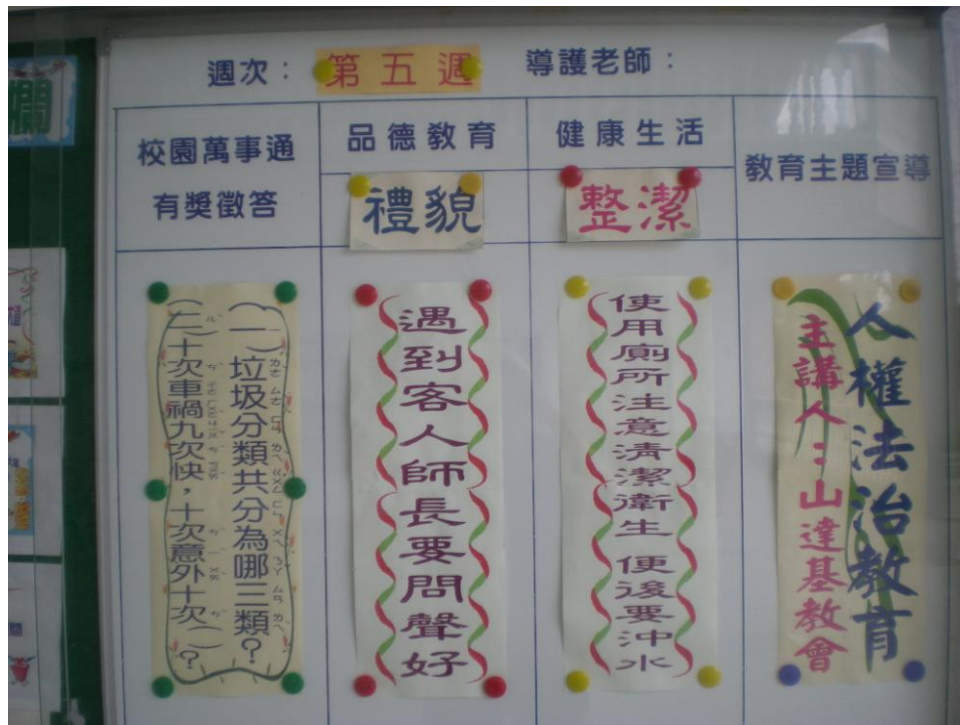 週次：第五週 導護老師：
校園萬事通
有獎徵答
品德教育
健康生活
教育主題宣導
禮貌
整潔
(一)垃圾分類共分為哪三類？
(二)十次車禍九次快，十次意外十次( )？
遇到客人師長要問聲好
使用廁所注意清潔衛生 便後要沖水
人權法治教育
主講人：山達基教會
欄